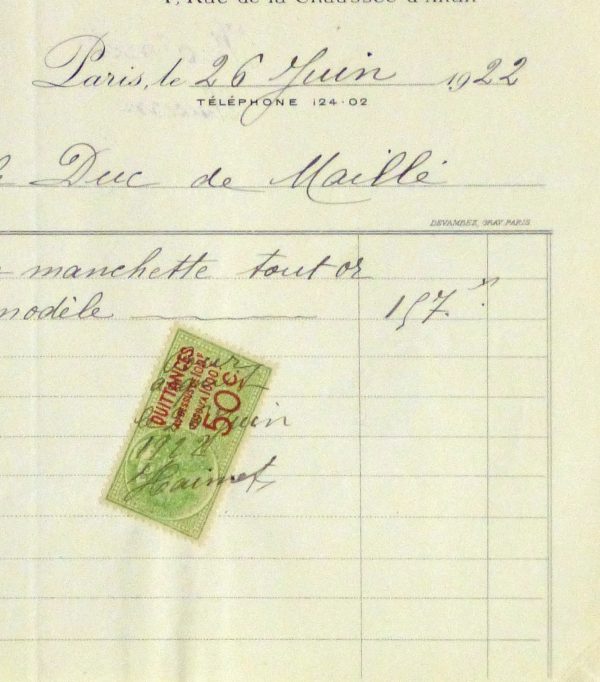 1, Rue de la Chaussée d'Antin
Paris, le 26 Juin 1922
TÉLÉPHONE 124-02
Duc de Maillé
DEVAMBEZ, GRAV. PARIS
manchette tout or
modèle 157.
QUITTANCES
50c.
Juin
1922